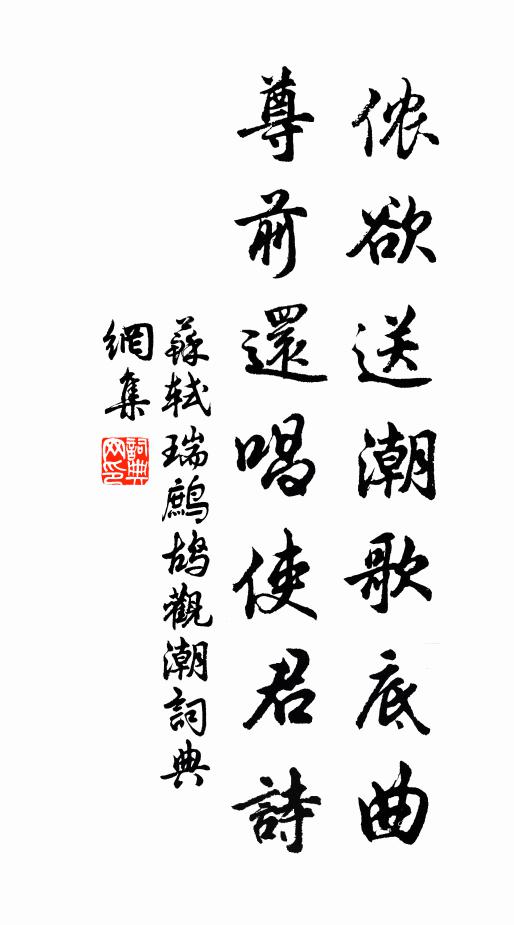 侬欲送潮歌底曲
尊前還唱使君詩
蘇軾瑞鷓鴣觀潮詞典
網集
詞典网印